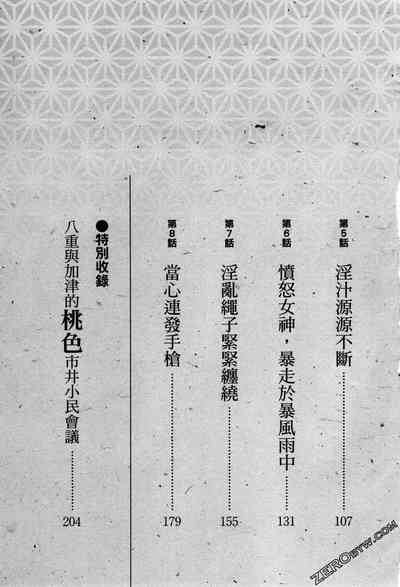 第5話 淫汁源源不斷 107
第6話 憤怒女神，暴走於暴風雨中 131
第7話 淫亂繩子緊緊纏繞 155
第8話 當心連發手槍 179
●特別收錄
八重與加津的桃色市井小民會議 204
ZEROBYW.COM